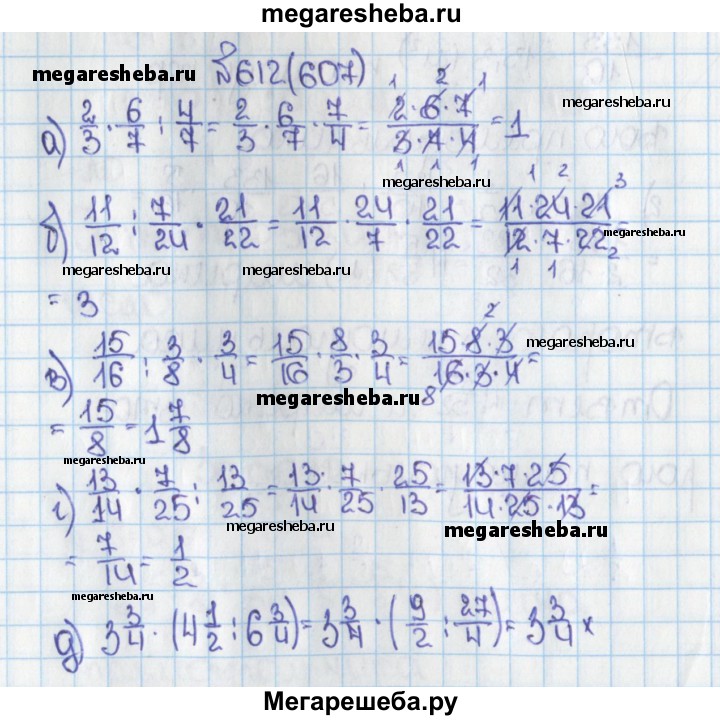 megaresheba.ru
№612(607)
megaresheba.ru
megaresheba.ru
а) 2/3 · 6/7 : 4/7 = 2/3 · 6/7 · 7/4 = 2·6·7/3·7·4 = 1
megaresheba.ru
б) 11/12 : 7/24 · 21/22 = 11/12 · 24/7 · 21/22 = 11·24·21/12·7·22 =
megaresheba.ru
megaresheba.ru
megaresheba.ru
= 3
в) 15/16 : 3/8 · 3/4 = 15/16 · 8/3 · 3/4 = 15·8·3/16·3·4 =
megaresheba.ru
megaresheba.ru
= 15/8 = 1 7/8
megaresheba.ru
г) 13/14 · 7/25 : 13/25 = 13/14 · 7/25 · 25/13 = 13·7·25/14·25·13 =
megaresheba.ru
megaresheba.ru
= 7/14 = 1/2
megaresheba.ru
д) 3 3/4 · (4 1/2 : 6 3/4) = 3 3/4 · (9/2 : 27/4) = 3 3/4 ×
Мегарешеба.ру